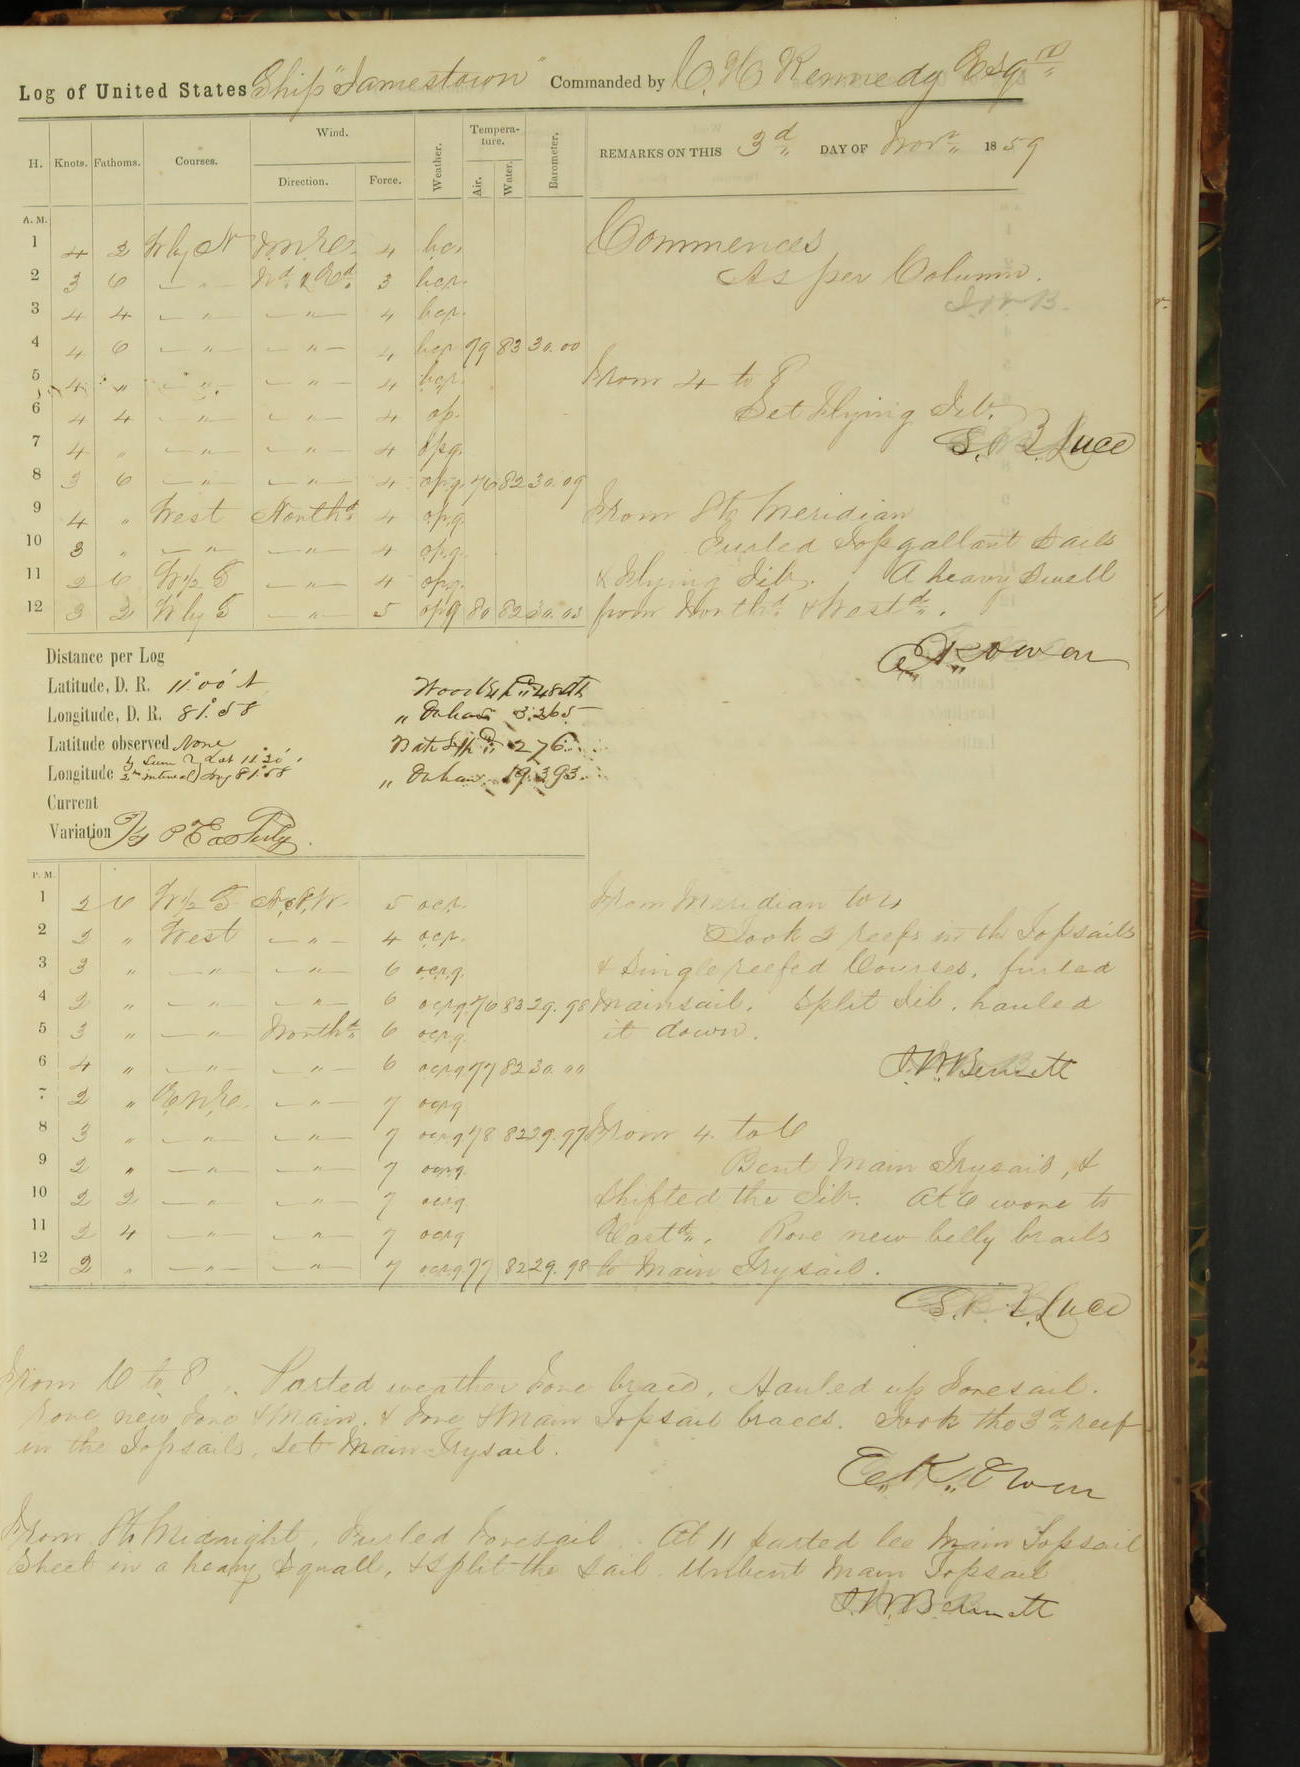 Log of United States Ship "Jamestown" Commanded by C. H. Kennedy Esqre
H. Knots. Fathoms. Courses. Wind. Direction. Force. Weather. Temperature. Air. Water. Barometer. REMARKS ON THIS 3d DAY OF Novr 1859
A. M.
1 4 2 W by N N.N.E. 4 bc.
2 3 6 — " — Nd & Ed 3 bcp.
3 4 4 — " — — " — 4 bcp.
4 4 6 — " — — " — 4 bcp 79 83 30.00
5 4 " — " — — " — 4 bcp.
6 4 4 — " — — " — 4 op.
7 4 " — " — — " — 4 opq.
8 3 6 — " — — " — 4 opq. 76 82 30.09
9 4 " West Northd 4 opq
10 3 " — " — — " — 4 opq.
11 2 6 W ½ S — " — 4 opq.
12 3 2 W by S — " — 5 opq 80 82 30.03
Commences
As per Column.
J.W.B.
From 4 to 8
Set Flying Jib.
S. B. Luce
From 8 to Meridian
Furled Topgallant Sails
& Flying Jib. A heavy Swell
from Northd & Westd.
E. K. Owen
Distance per Log
Latitude, D. R. 11° 00' N
Longitude, D. R. 81° 58
Latitude observed None
Longitude by Lun
Current
Variation ¾ Pt Easterly.
" On hand 3.265
" On hand 19.393.
P. M.
1 2 6 W ½ S N.N.W. 5 ocp.
2 2 " West — " — 4 ocp.
3 3 " — " — — " — 6 ocpq.
4 2 " — " — — " — 6 ocpq. 76 83 29.98
5 3 " — " — Northd 6 ocpq.
6 4 " — " — — " — 6 ocpq 77 82 30.00
7 2 " E.N.E. — " — 7 ocpq
8 3 " — " — — " — 7 ocpq 78 82 29.97
9 2 " — " — — " — 7 ocpq.
10 2 2 — " — — " — 7 ocpq.
11 2 4 — " — — " — 7 ocpq
12 2 " — " — — " — 7 ocpq. 77 82 29.98
From Meridian to 4
Took 2 reefs in the Topsails
& Single reefed Courses, furled
Mainsail. Split Jib, hauled
it down.
J. W. Bennett
From 4 to 6
Bent Main Trysail, &
shifted the Jib. At 6 wore to
Eastd. Rove new belly brails
to Main Trysail.
S. B. Luce
From 6 to 8 " Parted weather Fore brace, Hauled up Foresail.
Rove new Fore & Main, & Fore & Main Topsail braces. Took the 3d reef
in the Topsails, Set Main Trysail.
E. K. Owen
From 8 to Midnight, Furled Foresail. At 11 parted lee Main Topsail
Sheet in a heavy Squall, & split the sail. Unbent Main Topsail
J. W. Bennett